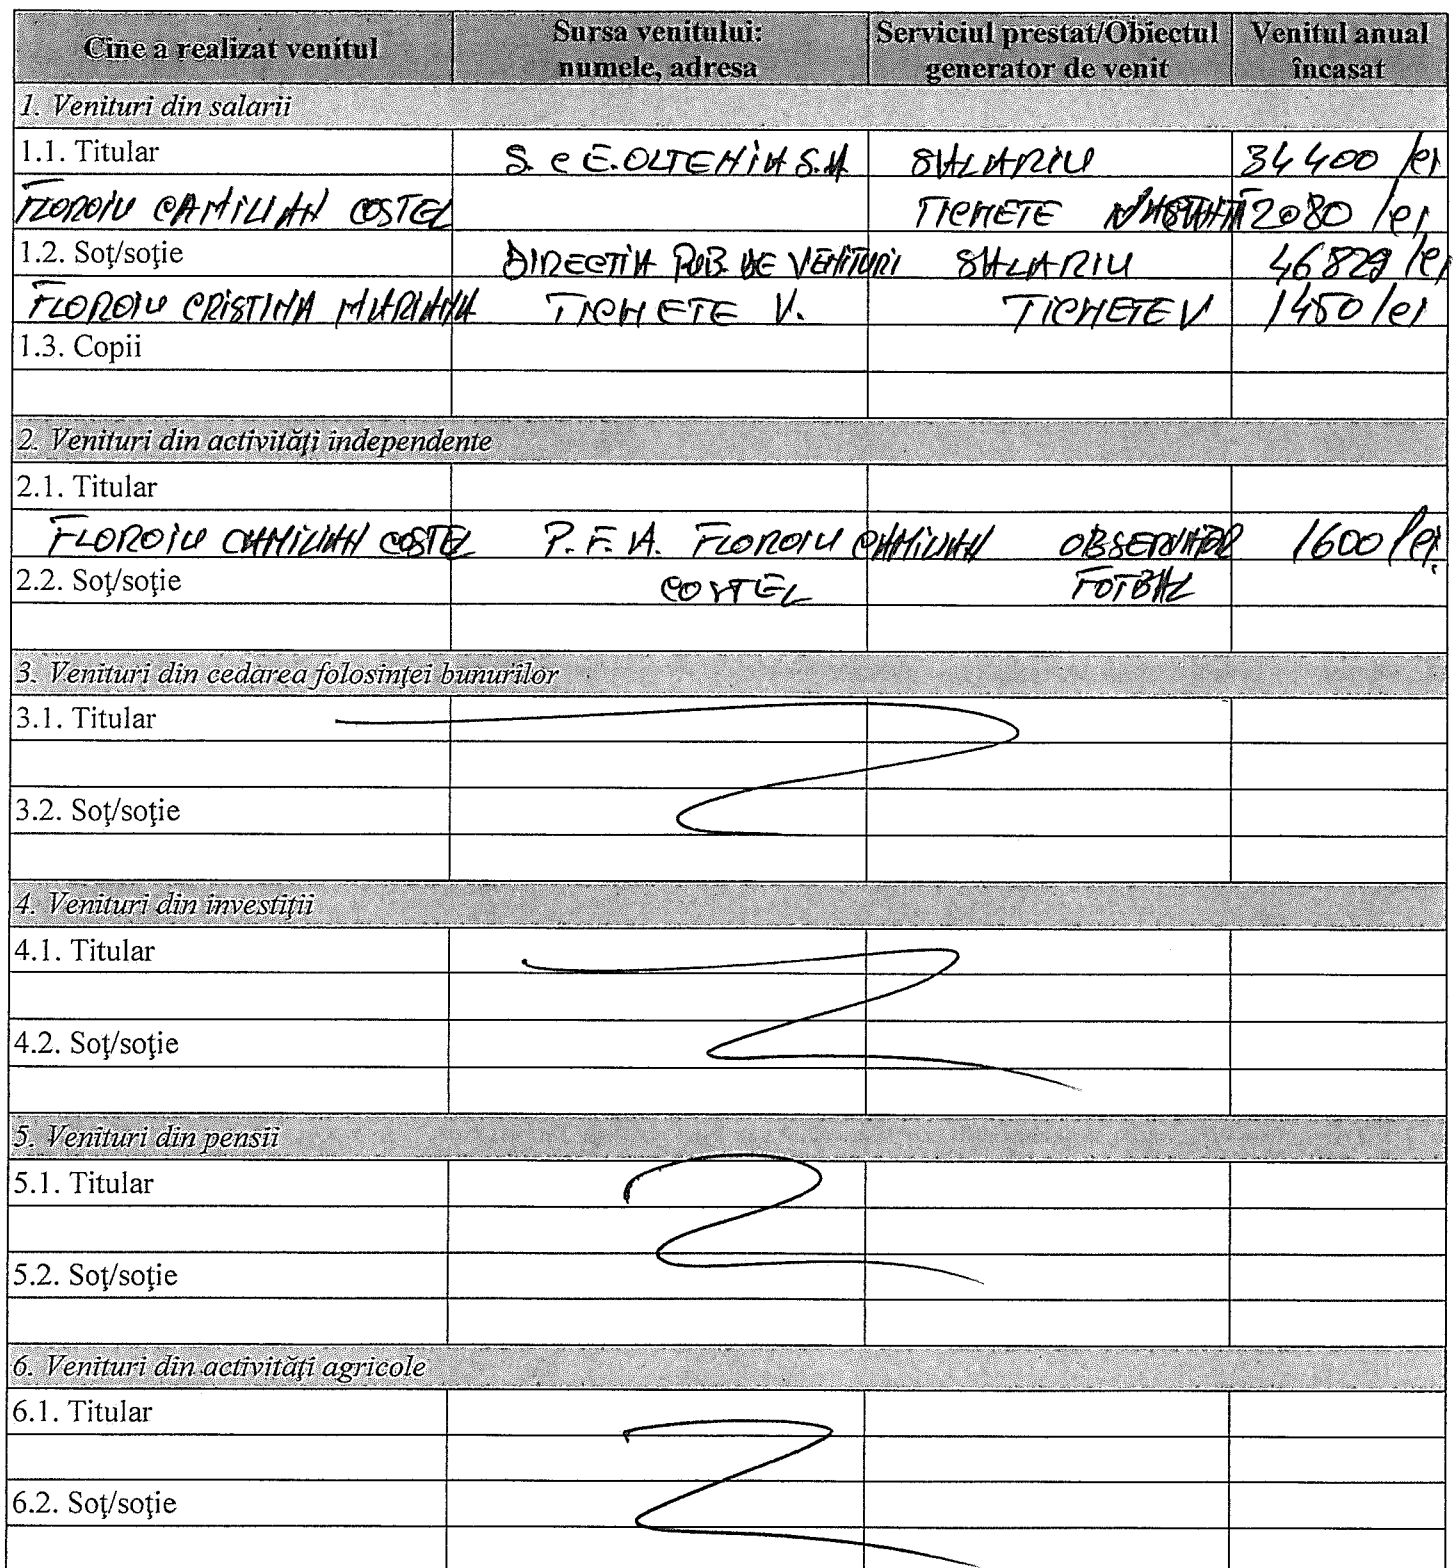 Cine a realizat venitul Sursa venitului: numele, adresa Serviciul prestat/Obiectul generator de venit Venitul anual încasat
1. Venituri din salarii
1.1. Titular S. C E. OLTENIA S.A SALARIU 34 400 lei
FLOROIU CAMILIAN COSTEL TICHETE 2080 lei
1.2. Soţ/soţie DIRECTIA PUB. DE VENITURI SALARIU 46829 lei
FLOROIU CRISTINA MARIANA TICHETE V. TICHETE V 1450 lei
1.3. Copii
2. Venituri din activităţi independente
2.1. Titular
FLOROIU CAMILIAN COSTEL P. F. A. FLOROIU CAMILIAN OBSERVATOR 1600 lei
2.2. Soţ/soţie COSTEL FOTBAL
3. Venituri din cedarea folosinţei bunurilor
3.1. Titular
3.2. Soţ/soţie
4. Venituri din investiţii
4.1. Titular
4.2. Soţ/soţie
5. Venituri din pensii
5.1. Titular
5.2. Soţ/soţie
6. Venituri din activităţi agricole
6.1. Titular
6.2. Soţ/soţie